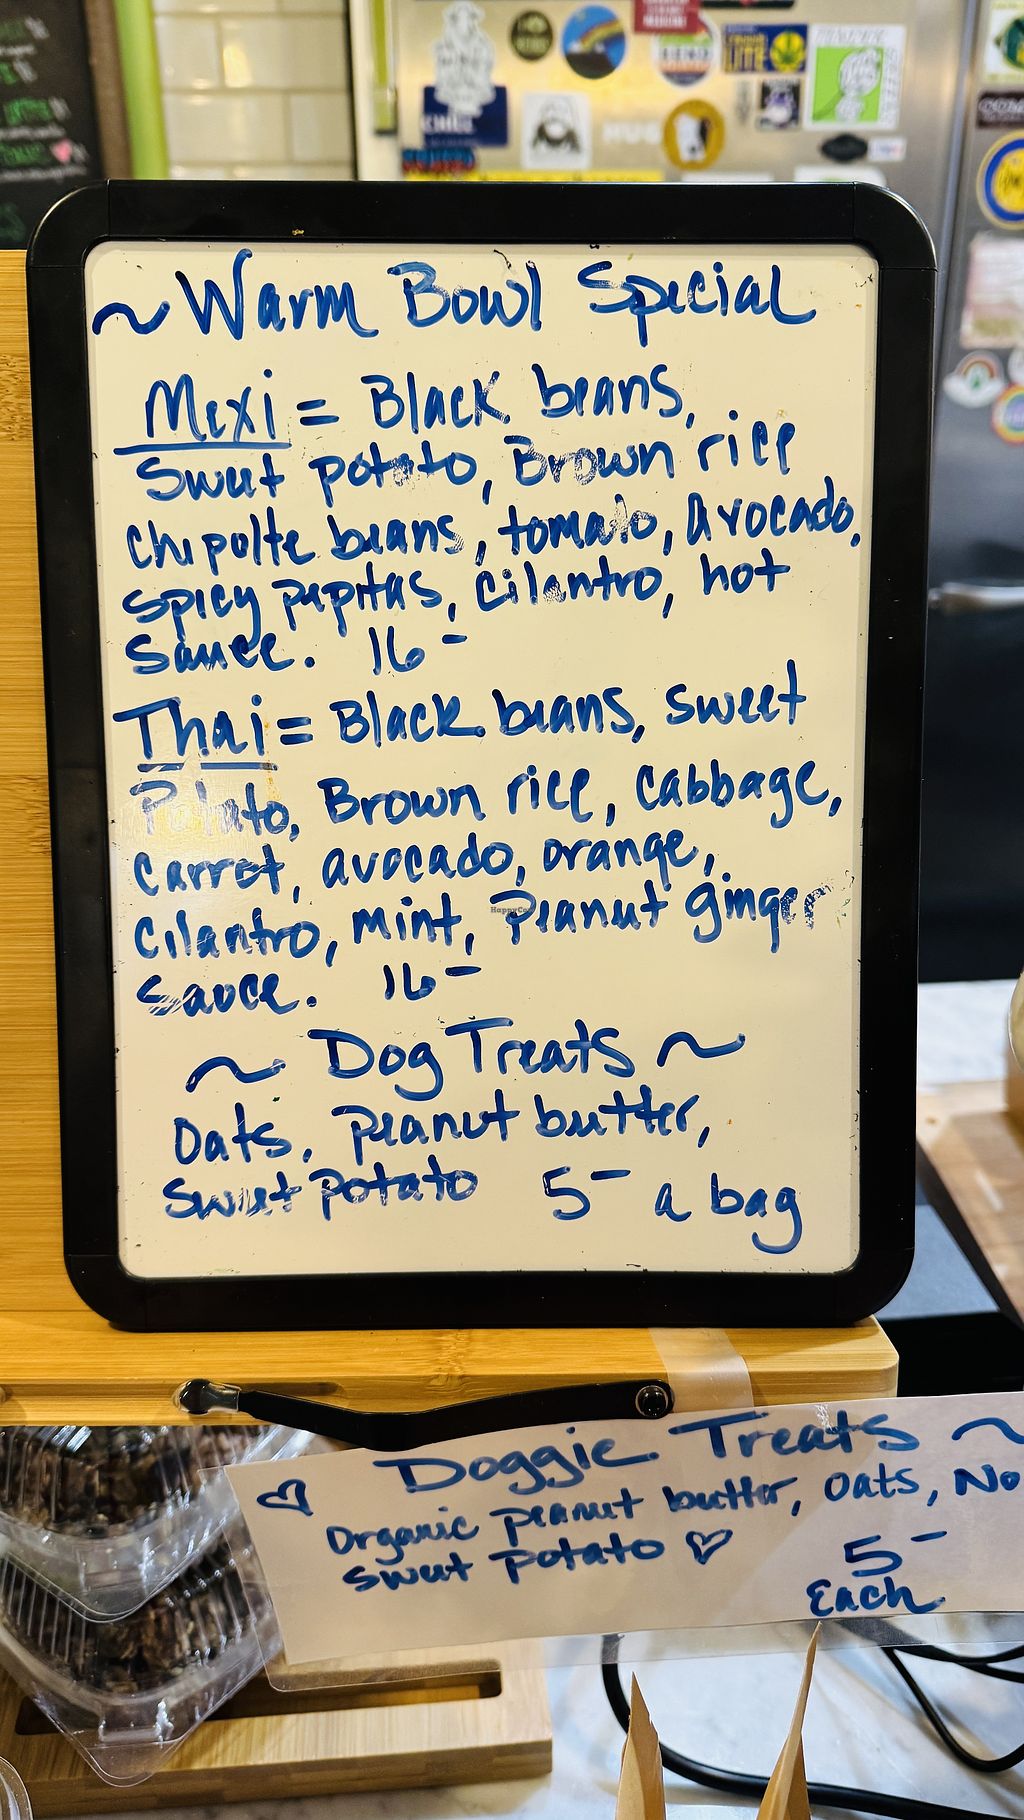 ~ Warm Bowl Special
Mexi = Black beans,
Sweet potato, Brown rice
Chipolte beans, tomato, avocado,
spicy pepitas, cilantro, hot
sauce. 16-
Thai = Black beans, sweet
Potato, Brown rice, cabbage,
carrot, avocado, orange,
cilantro, mint, peanut ginger
sauce. 16-
~ Dog Treats ~
Oats, peanut butter,
Sweet potato 5- a bag
Doggie Treats ~
Organic peanut butter, oats, No
sweet potato
5-
Each
CHILL
HUG
BEND
LITE
HappyCow